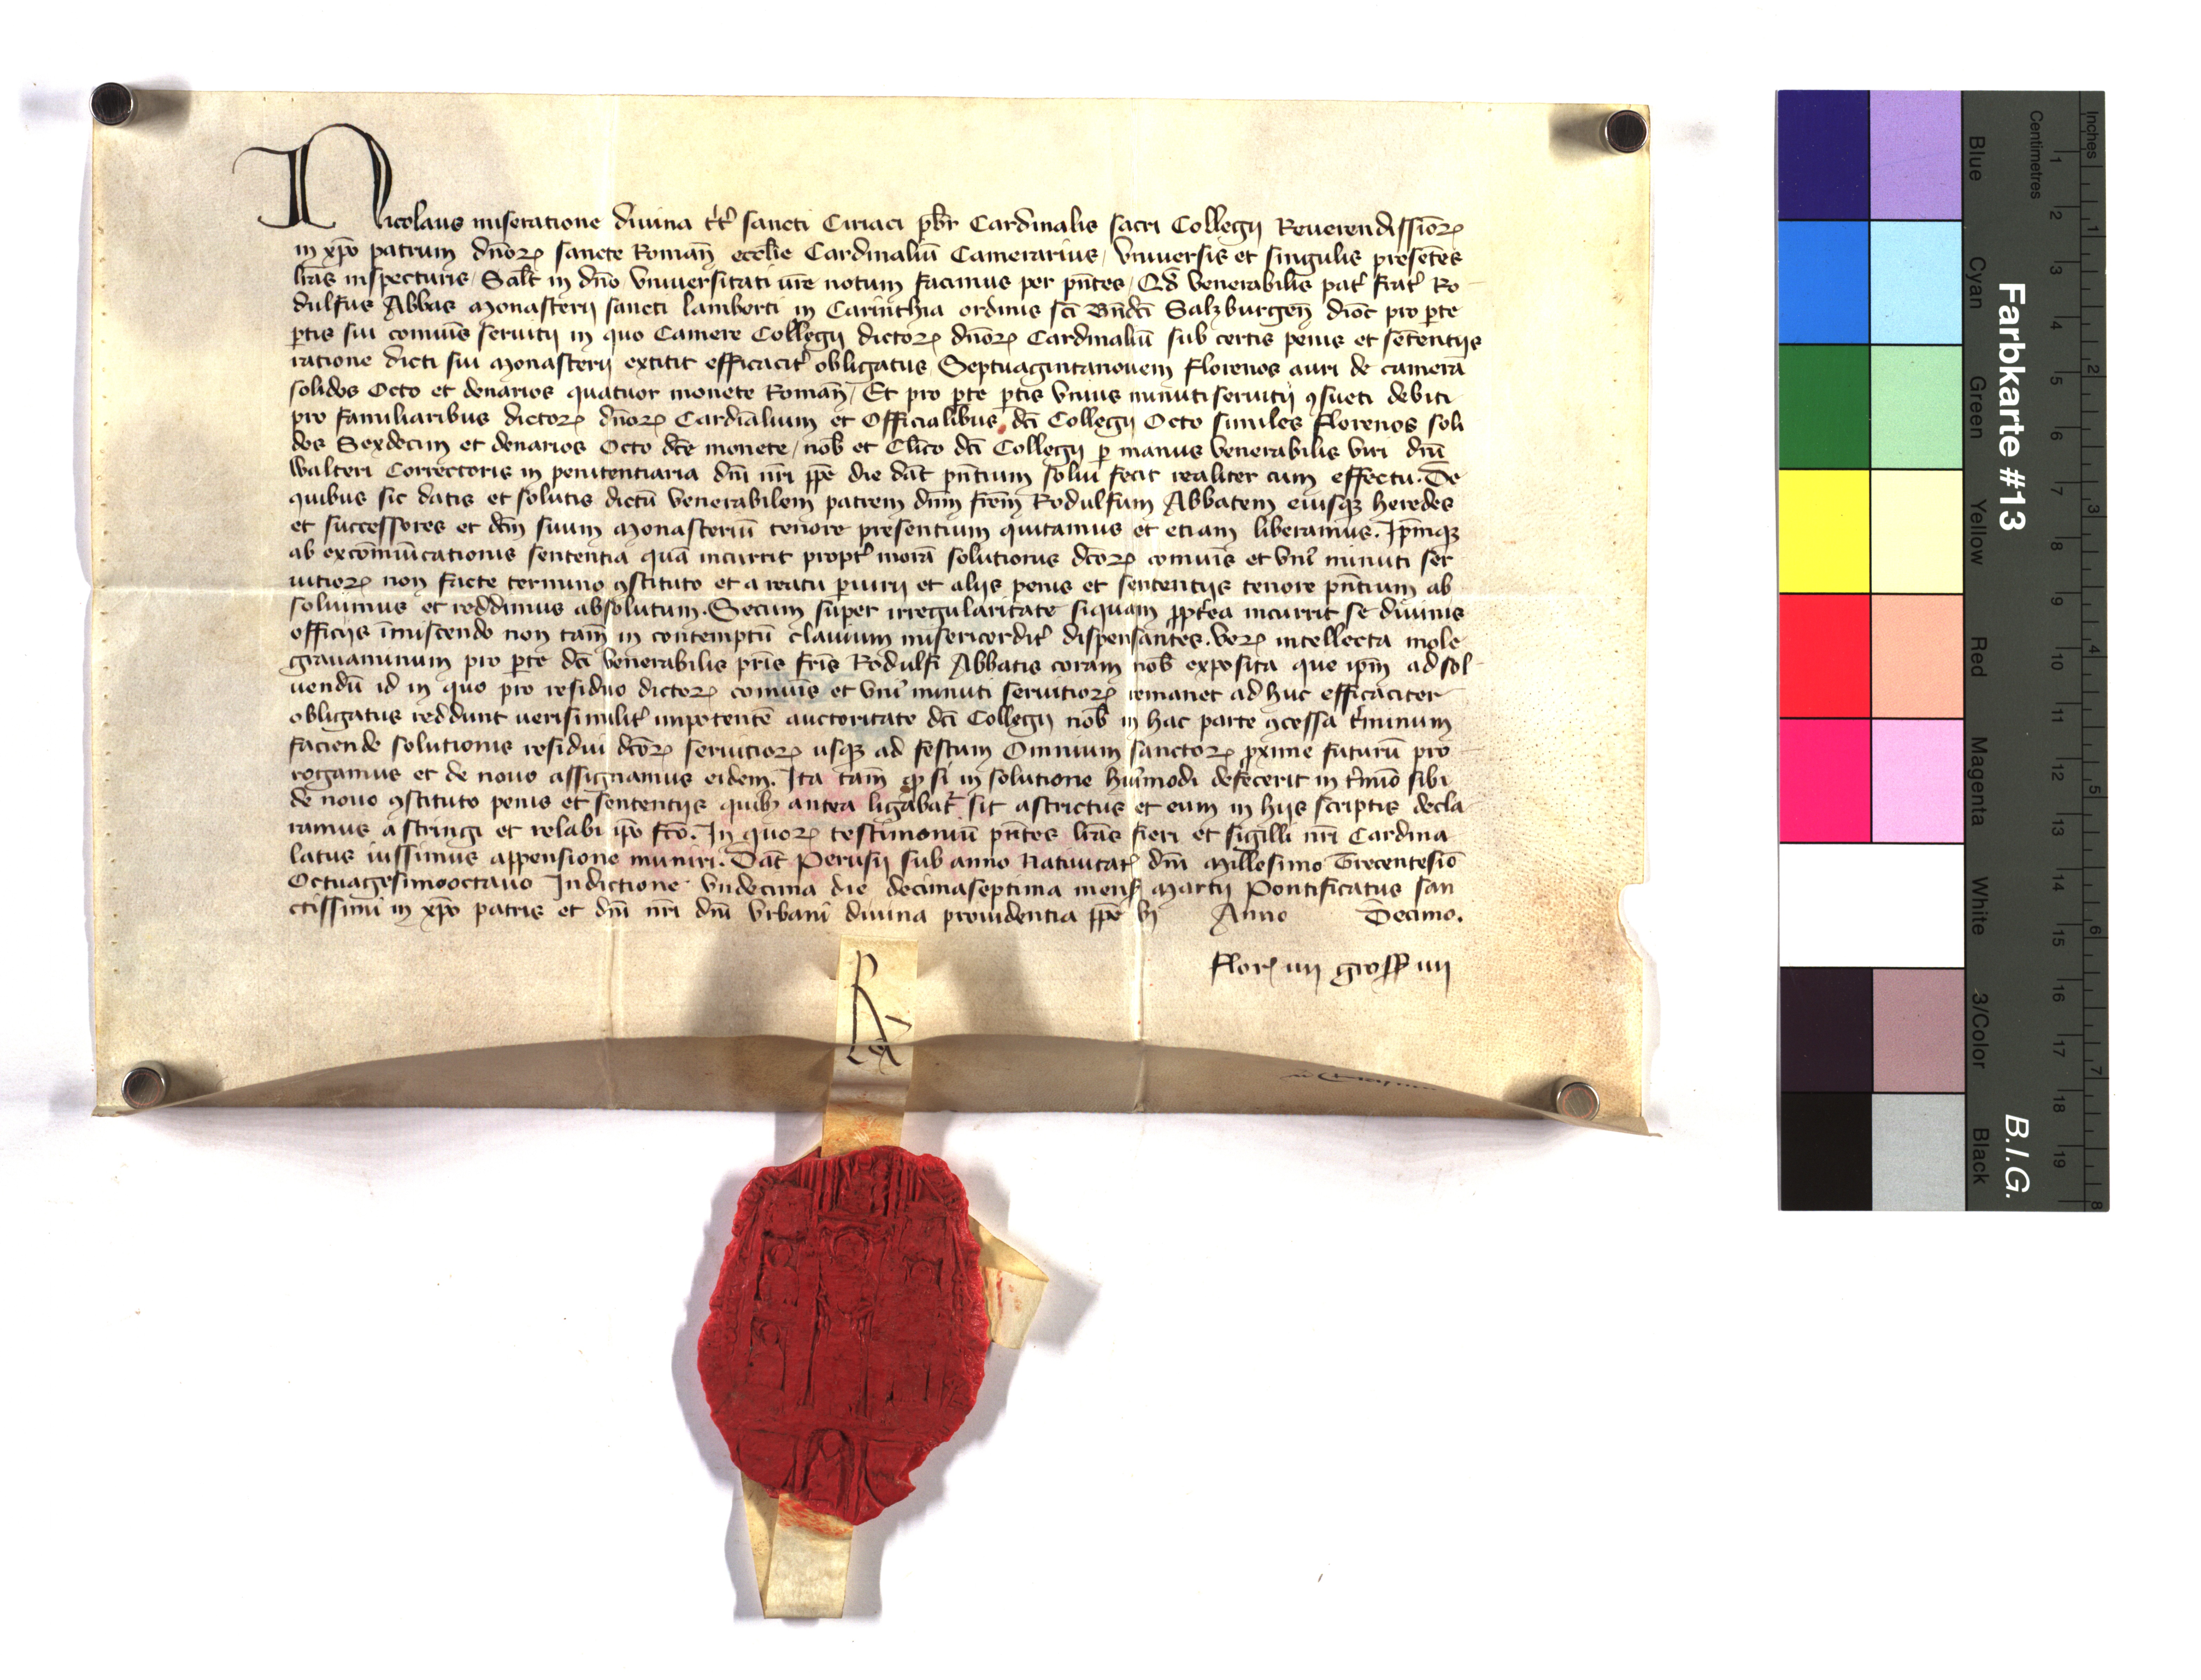 Nicolaus miseratione divina tt̄ sancti Ciriaci pb̄r Cardinalis sacri Collegij Reuerendissiōꝝ
in xp̄o patrum dn̄oꝝ sancte Roman̄ eccl̄ie Cardinaliū Camerarius, Vniuersis et singulis presētes
lr̄as inspecturis, Salt̄ in dn̄o, Vniuersitati ur̄e notum facimus per pn̄tes, Qd̄ venerabilis pat̄ frat̄ Ro
dulfus Abbas Monasterij sancti lamberti in Carinthia ordinis sc̄i Bn̄dc̄i Salzburgen̄ dioc̄ pro pt̄e
ptis sui comūis seruitij in quo Camere Collegij dictoꝝ dn̄oꝝ Cardinaliū sub certis penis et sētentijs
ratione dicti sui Monasterij extitit efficacit̄ obligatus Septuagintanouem florenos auri de camera
solidos Octo et denarios quatuor monete Roman̄, Et pro pt̄e ptis Vnius minuti seruitij ꝯsueti debiti
pro familiaribus dictoꝝ dn̄oꝝ Cardīalium et Officialibus dc̄i Collegij Octo similes florenos soli
dos Sexdecim et denarios Octo dc̄e monete, nob̄ et Cl̄ico dc̄i Collegij ꝑ manus venerabilis viri dn̄i
walteri Correctoris in penitentiaria dn̄i nr̄i pp̄e die dat̄ pn̄tium solui fecit realiter cum effectu. De
quibus sic datis et solutis dictū venerabilem patrem dn̄m fr̄em Rodulfum Abbatem eiusqꝫ heredes
et successores et dc̄m suum Monasteriū tenore presentium quitamus et etiam liberamus. Ip̄mqꝫ
ab excōmūicationis sententia quā incurrit propt̄ morā solutionis dc̄oꝝ comūis et vnī minuti ser
uitioꝝ non facte termino ꝯstituto et a reatu ꝑiurij et alijs penis et sententijs tenore pn̄tium ab
soluimus et reddimus absolutum. Secum super irregularitate siquam ꝓpt̄ea incurrit se diuinis
officijs īmiscendo non tam̄ in contemptū clauium misericordit̄ dispensantes. Veꝝ intellecta mole
grauaminum pro pt̄e dc̄i venerabilis pr̄is fr̄is Rodulfi Abbatis coram nob̄ exposita que ip̄m ad sol
uendū id in quo pro residuo dictoꝝ comūis et vnī minuti seruitioꝝ remanet ad huc efficaciter
obligatus reddunt uerisimilit̄ impotentē auctoritate dc̄i Collegij nob̄ in hac parte ꝯcessa t̄minum
faciende solutionis residui dc̄oꝝ seruitioꝝ usqꝫ ad festum Omnium sanctoꝝ ꝓxime futurū pro
rogamus et de nouo assignamus eidem. Ita tam̄ ꝙ si in solutione huīmodi defecerit in t̄mīo sibi
de nouo ꝯstituto penis et sententijs quibꝫ antea ligabat̄ sit astrictus et eum in hijs scriptis decla
ramus astringi et relabi ip̄o fc̄o. In quoꝝ testimoniū pn̄tes lr̄as fieri et sigilli nr̄i Cardina
latus iussimus appensione muniri. Dat̄ Perusij sub anno Natiuitatꝭ dn̄i Millesimo Trecentesiō
Octuagesimooctauo Indictione vndecima die decimaseptima mens̄ Martij Pontificatus san
ctissimi in xp̄o patris et dn̄i nr̄i dn̄i Vrbani diuina prouidentia pp̄e vj Anno Decimo.
florꝭ iiij gross̄ iiij
Farbkarte #13
B.I.G.
Inches
Centimetres
1 2 3 4 5 6 7 8
1 2 3 4 5 6 7 8 9 10 11 12 13 14 15 16 17 18 19
Blue
Cyan
Green
Yellow
Red
Magenta
White
3/Color
Black